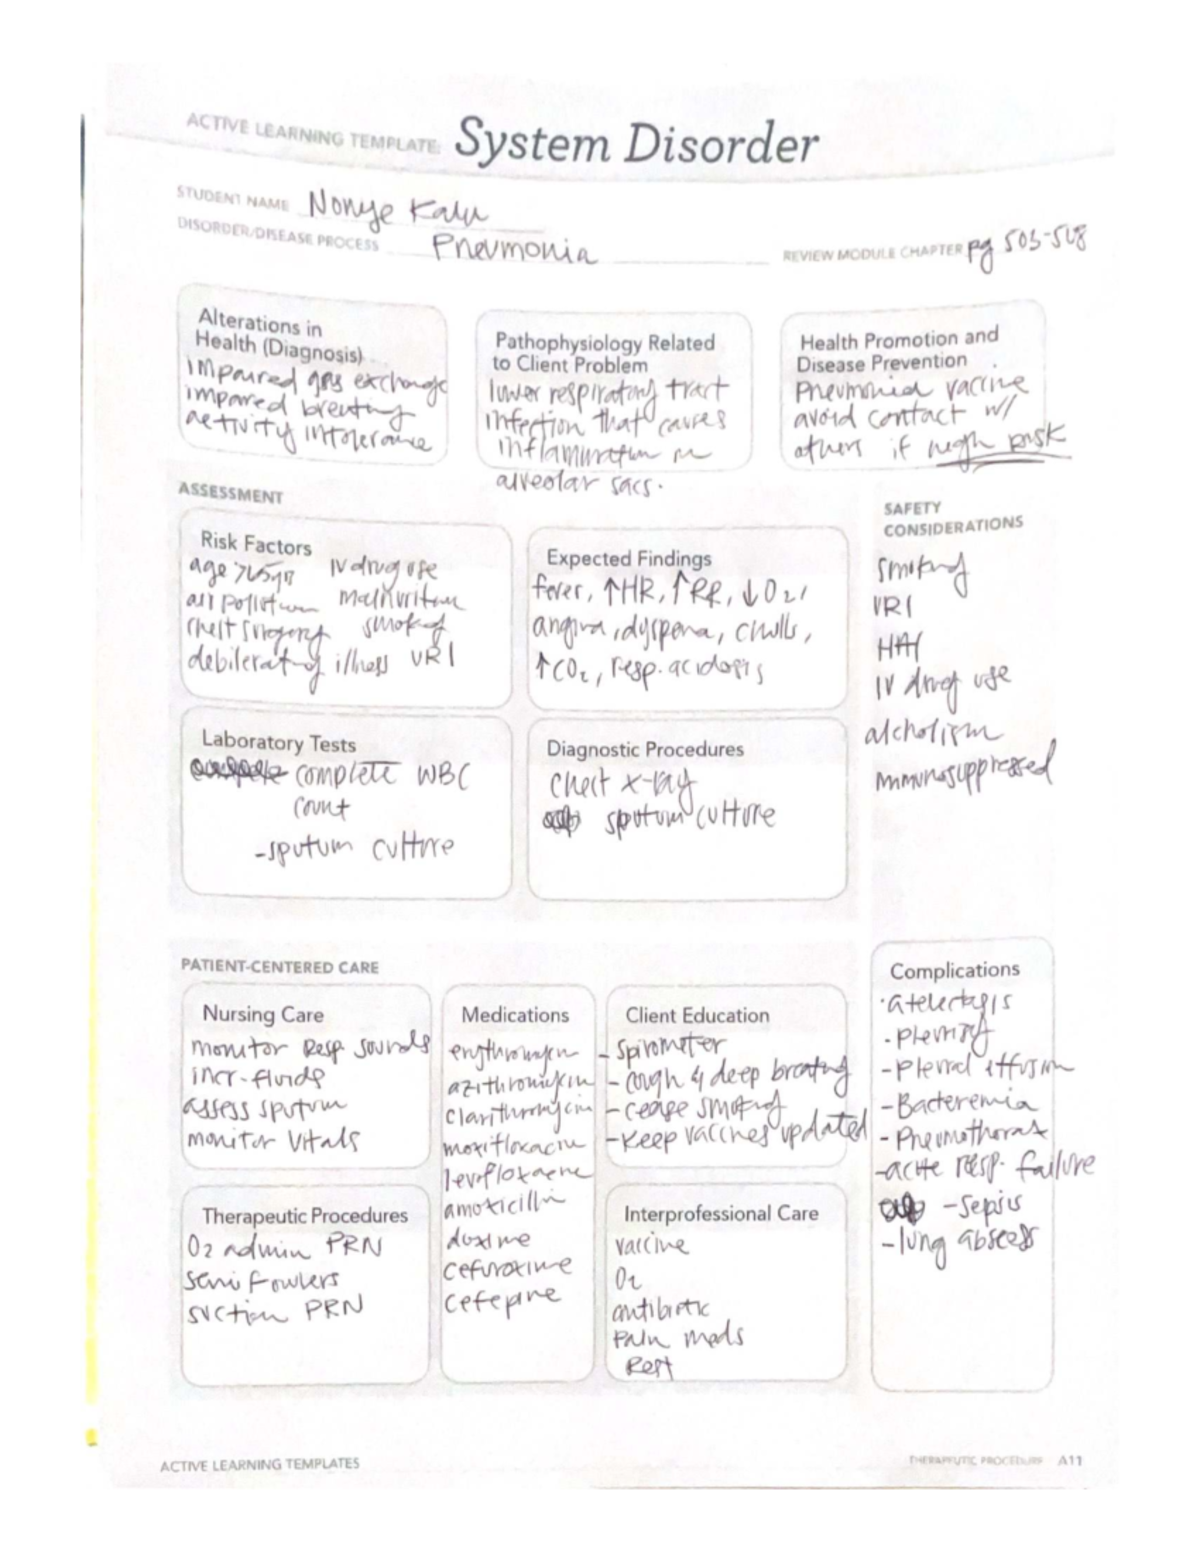 ACTIVE LEARNING TEMPLATE: System Disorder
STUDENT NAME Nonye Kalu
DISORDER/DISEASE PROCESS Pneumonia
REVIEW MODULE CHAPTER pg 503-508
Alterations in
Health (Diagnosis)
impaired gas exchange
impared breating
activity intolerance
Pathophysiology Related
to Client Problem
lower respiratory tract
infection that causes
inflammation in
alveolar sacs.
Health Promotion and
Disease Prevention
Pneumonia vaccine
avoid contact w/
others if high risk
ASSESSMENT
Risk Factors
age >65yr IV drug use
air pollution malnutrition
chest surgery smoking
debilerating illness URI
Expected Findings
fever, ↑HR, ↑RR, ↓O2,
angina, dyspena, chills,
↑CO2, resp. acidosis
SAFETY
CONSIDERATIONS
smoking
URI
HAI
IV drug use
alcholism
immunosuppressed
Laboratory Tests
complete WBC
count
-sputum culture
Diagnostic Procedures
chest x-ray
sputum culture
PATIENT-CENTERED CARE
Nursing Care
monitor Resp. sounds
incr. fluids
assess sputum
monitor Vitals
Medications
erythromycin
azithromycin
clarithromycin
moxifloxacin
levofloxacine
amoxicillin
cefuroxime
cefepine
Client Education
- Spirometer
- cough & deep breating
- cease smoking
- Keep vaccines updated
Complications
· atelectasis
- pleurisy
- pleural effusion
- Bacteremia
- Pneumothorax
-acute resp. failure
-sepsis
-lung abscess
Therapeutic Procedures
O2 admin PRN
semi fowlers
suction PRN
Interprofessional Care
vaccine
O2
antibiotic
Pain meds
Rest
ACTIVE LEARNING TEMPLATES
THERAPEUTIC PROCEDURE A11